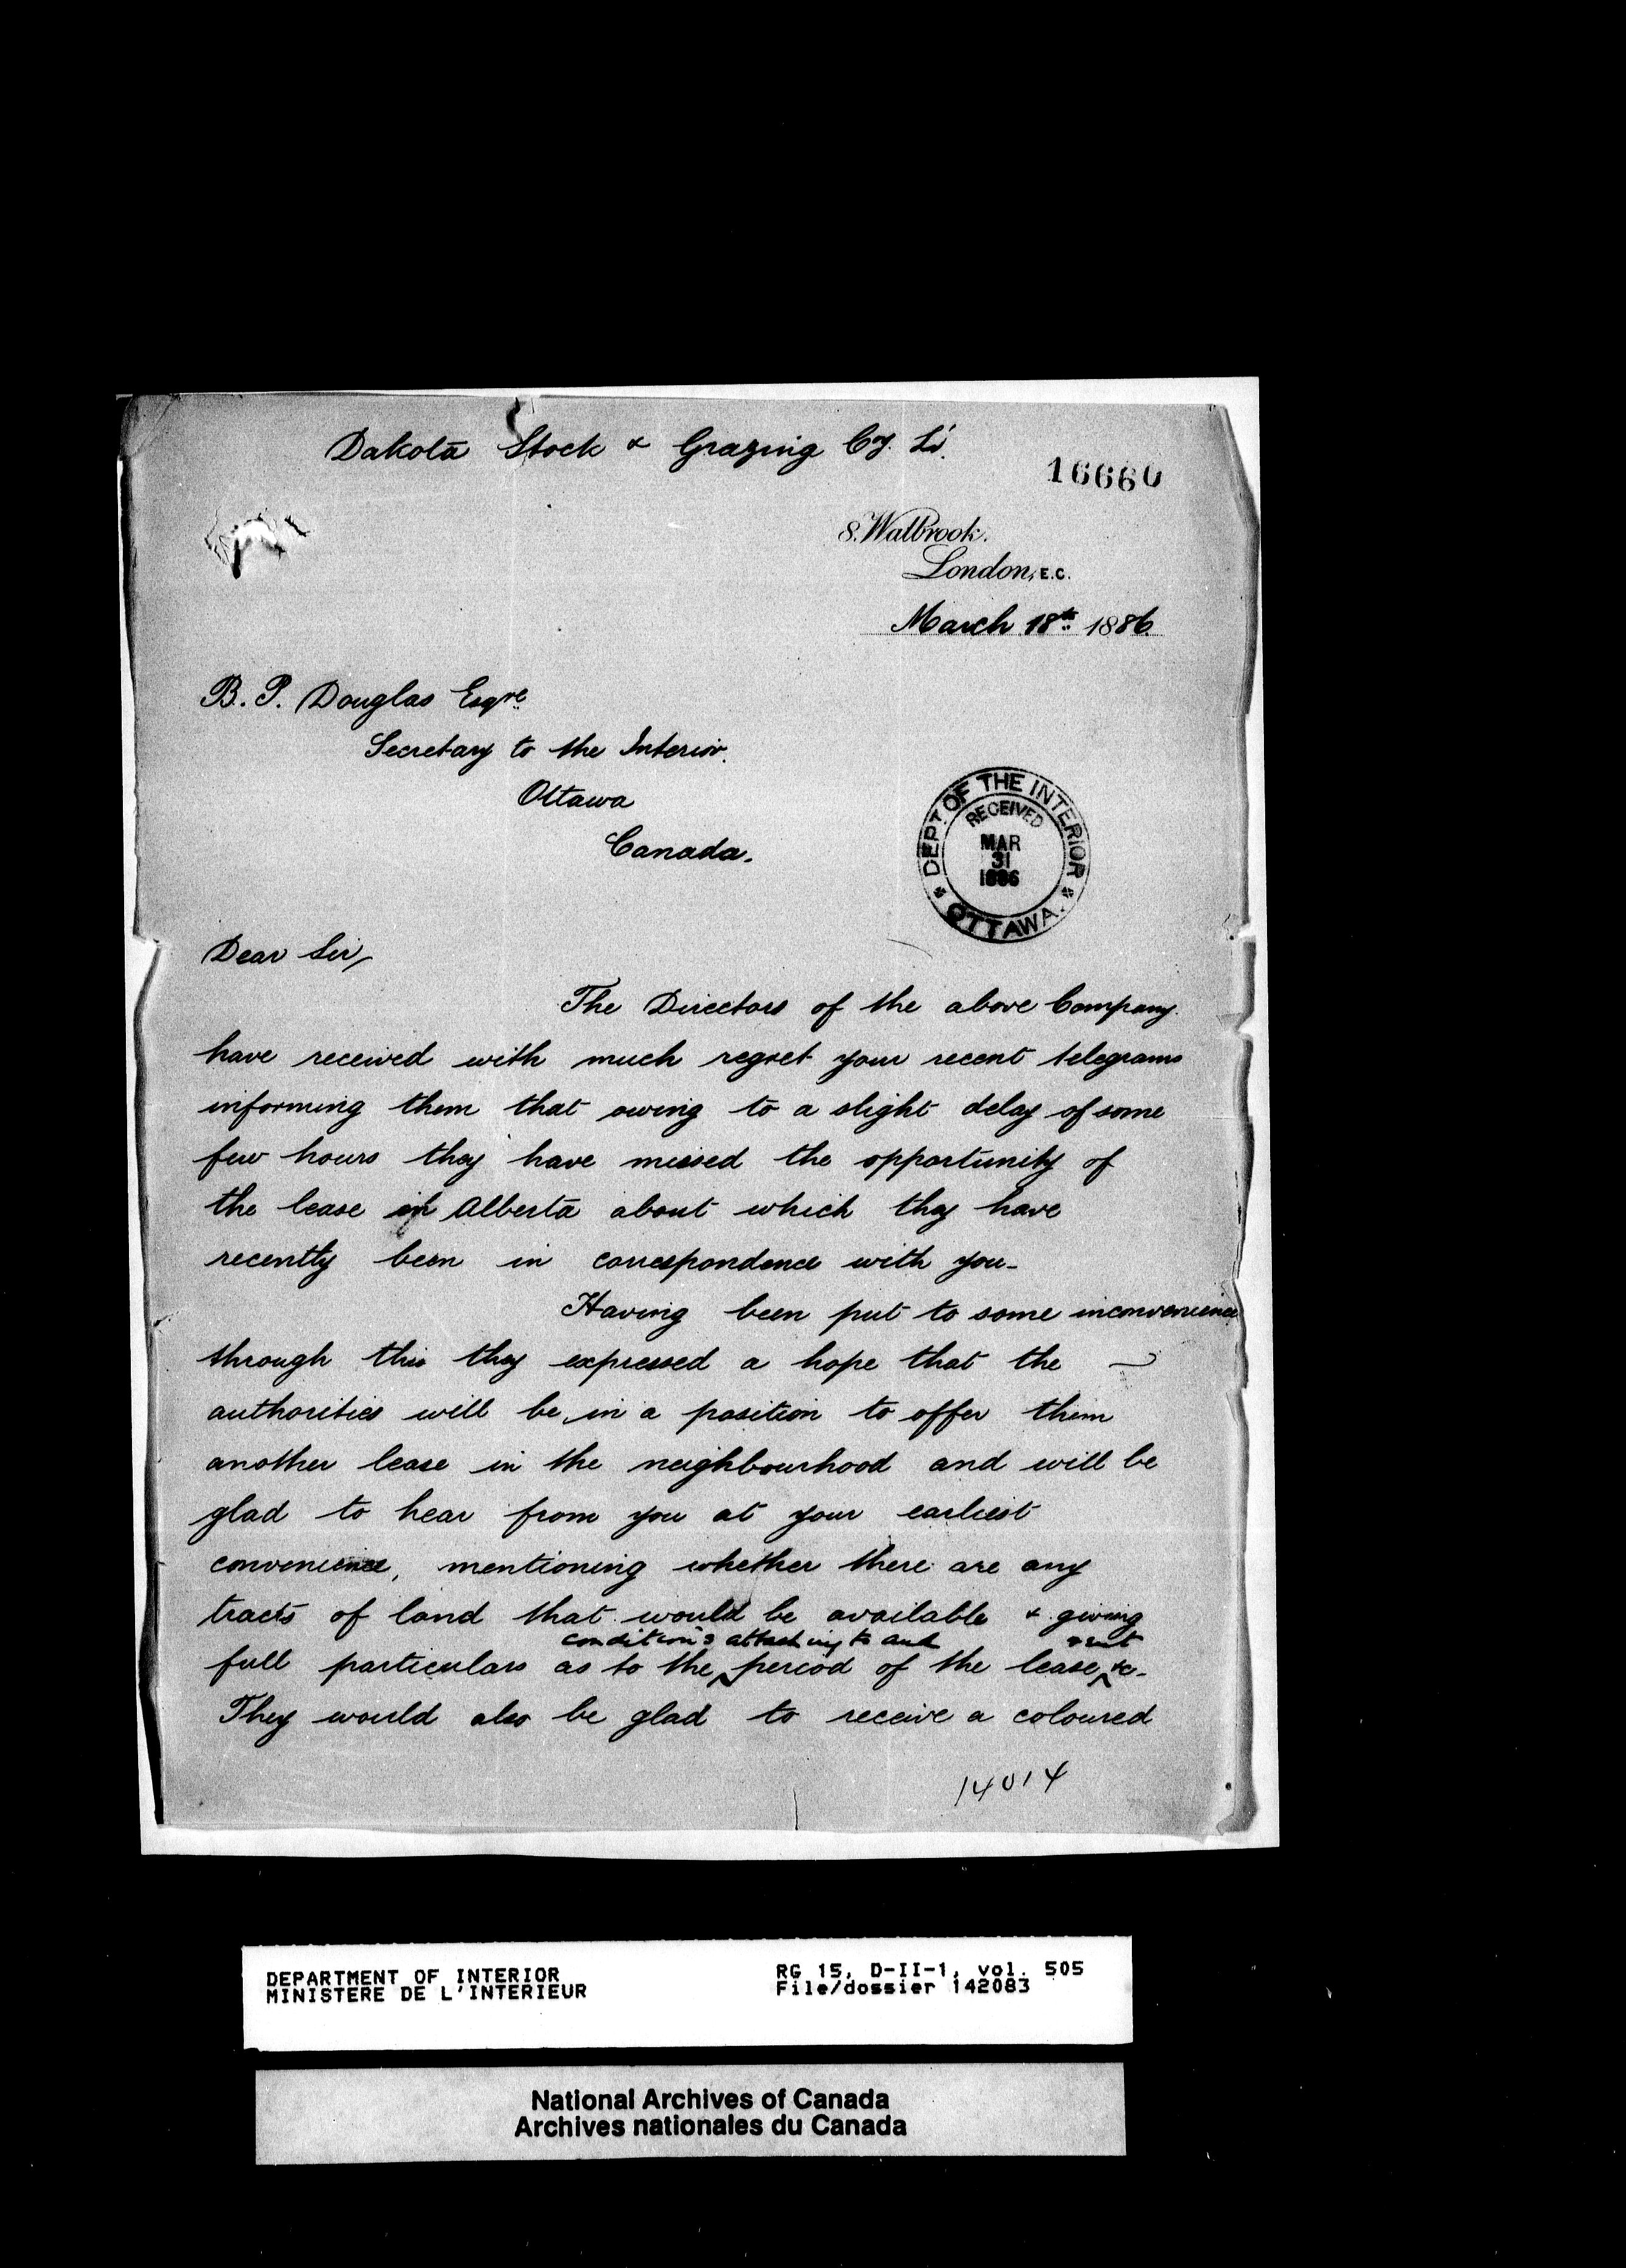 Dakota Stock & Grazing Coy. Ld.
16660
8. Walbrook.
London, E.C.
March 18th 1886
B. P. Douglas Esqre
Secretary to the Interior.
Ottawa
Canada.
DEPT. OF THE INTERIOR
RECEIVED
MAR
31
1886
OTTAWA.
Dear Sir,
The Directors of the above Company.
have received with much regret your recent telegrams
informing them that owing to a slight delay of some
few hours they have missed the opportunity of
the lease in Alberta about which they have
recently been in correspondence with you-
Having been put to some inconvenience
through this they expressed a hope that the
authorities will be in a position to offer them
another lease in the neighbourhood and will be
glad to hear from you at your earliest
convenience, mentioning whether there are any
tracts of land that would be available & giving
conditions attaching to and rent
full particulars as to the period of the lease &c-
They would also be glad to receive a coloured
14014
DEPARTMENT OF INTERIOR
MINISTERE DE L'INTERIEUR
RG 15, D-II-1, vol. 505
File/dossier 142083
National Archives of Canada
Archives nationales du Canada